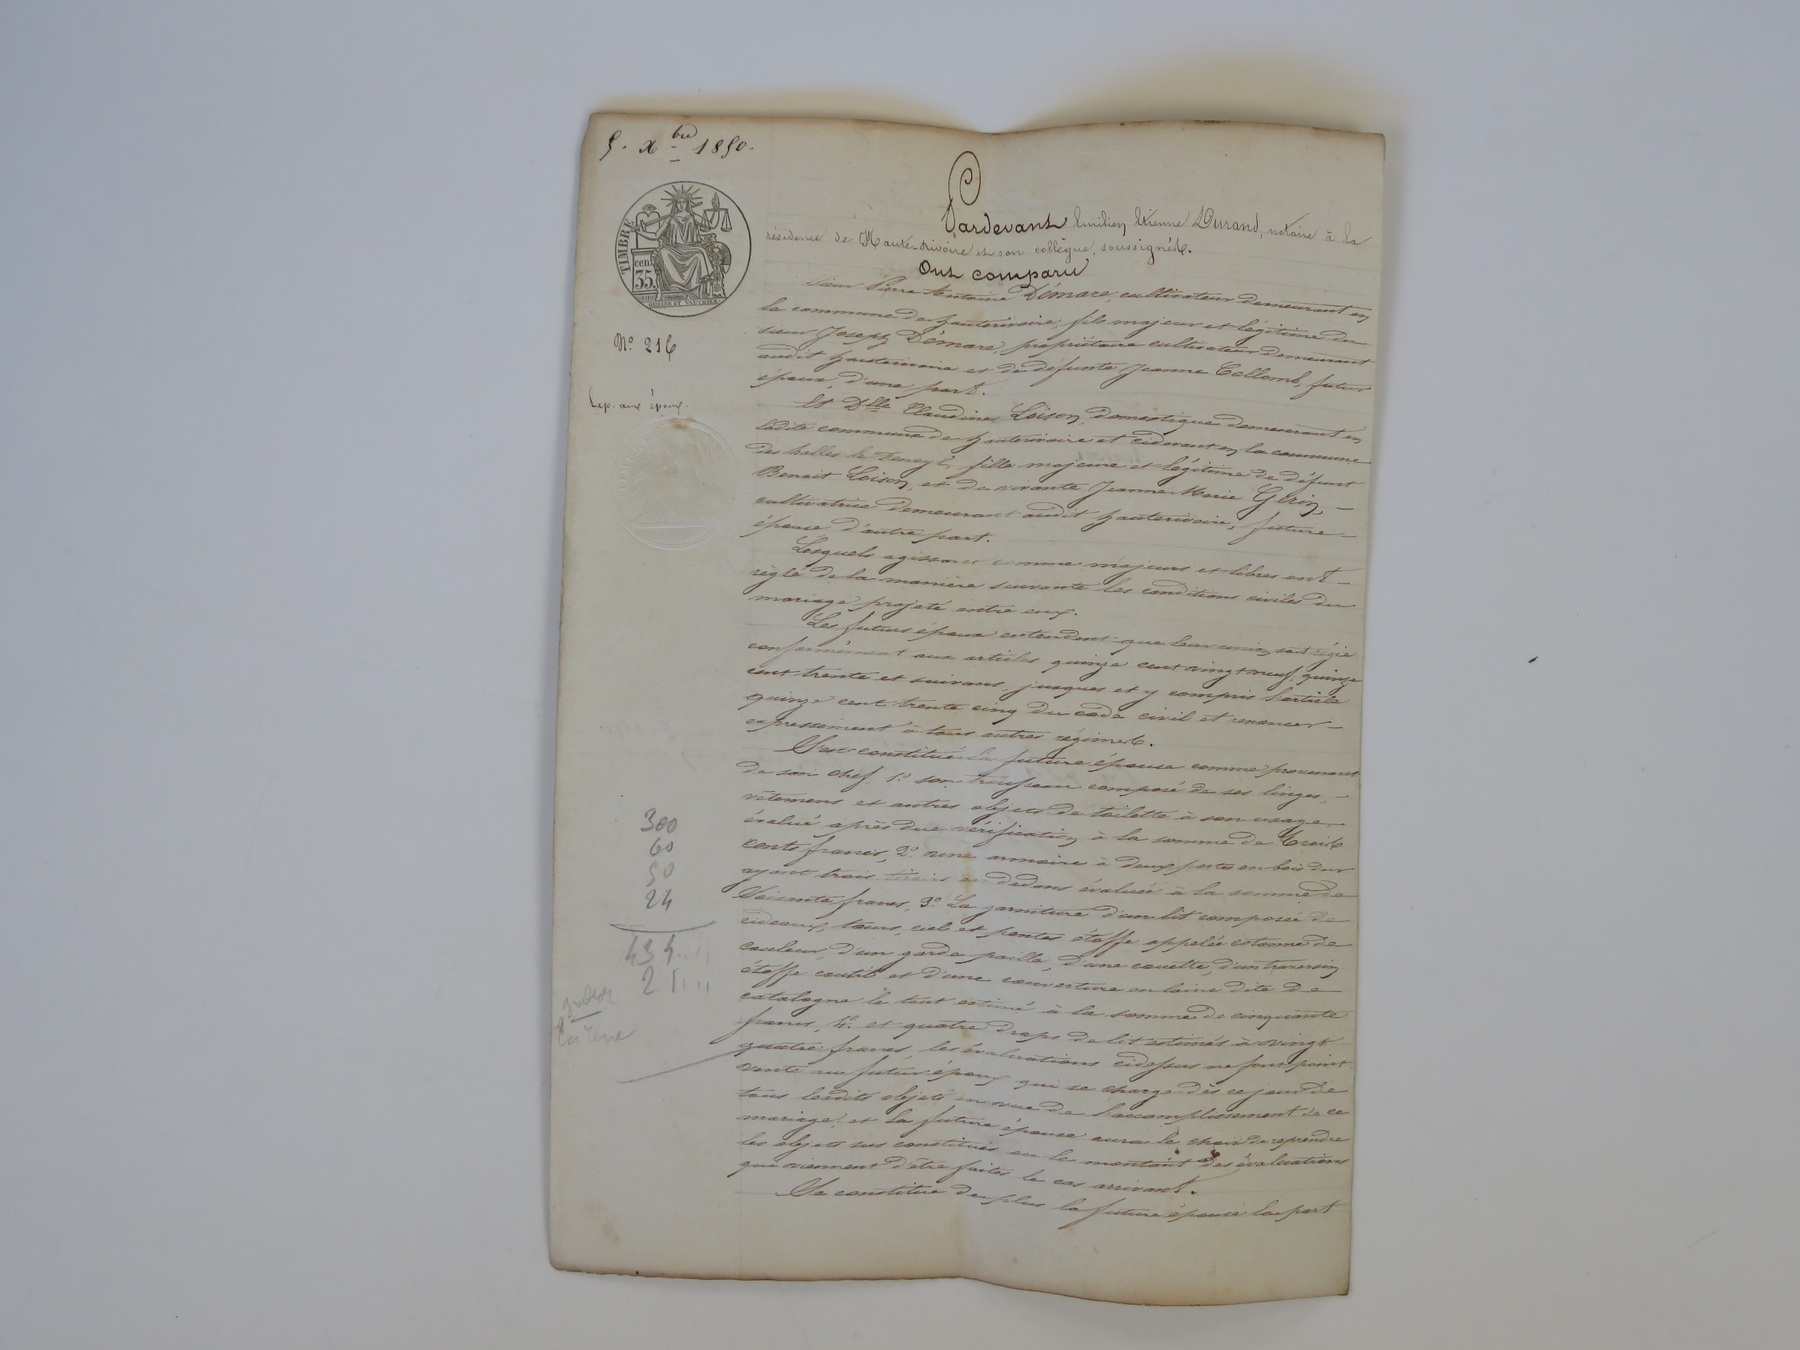 5. Xbre 1850.
TIMBRE
cen.
35
No 216
Exp. aux époux.
Pardevant Emilien Etienne Durand, notaire à la
résidence de Haute-Rivoire et son collègue, soussignés.
Ont comparu
Sieur Pierre Antoine Démare, cultivateur demeurant en
la commune de hauterivoire, fils majeur et légitime du
sieur Joseph Démare, propriétaire cultivateur demeurant
audit hauterivoire et de défunte Jeanne Collomb, futur
époux, d'une part.
Et Dlle Claudine Loison, domestique demeurant en
ladite commune de hauterivoire et cidevant en la commune
des halles le fenoyl, fille majeure et légitime de défunt
Benoit Loison, et de vivante Jeanne Marie Gerin,
cultivatrice demeurant audit hauterivoire, future
épouse d'autre part.
Lesquels agissant comme majeurs et libres ont
réglé de la manière suivante les conditions civiles du
mariage projeté entre eux.
Les futurs époux entendent que leur union soit régie
conformément aux articles quinze cent vingt neuf, quinze
cent trente et suivans, jusques et y compris l'article
quinze cent trente cinq du code civil et renoncer
expressément à tous autres régimes.
S'est constitué la future épouse comme provenant
de son chef, 1o son trousseau composé de ses linges,
vêtemens et autres objets de toilette à son usage,
évalué après due vérification à la somme de Trois
cents francs, 2o une armoire à deux portes en bois dur
ayant trois tiroirs au dedans évaluée à la somme de
Soixante francs, 3o La garniture d'un lit composée de
rideaux, tours, ciel et pentes étoffe appelée cotonne de
couleur, d'un garde paille, d'une couette, d'un traversin
étoffe coutil et d'une couverture en laine dite de
catalogne le tout estimé à la somme de cinquante
francs, 4o et quatre draps de lit estimés à vingt
quatre francs, les évaluations cidessus ne font point
vente au futur époux qui se charge dès ce jour de
tous lesdits objets en vue de l'accomplissement de ce
mariage, et la future épouse aura le choix de reprendre
les objets sus constitués ou le montant des évaluations
qui viennent d'être faites le cas arrivant.
Se constitue de plus la future épouse la part
300
60
50
24
434